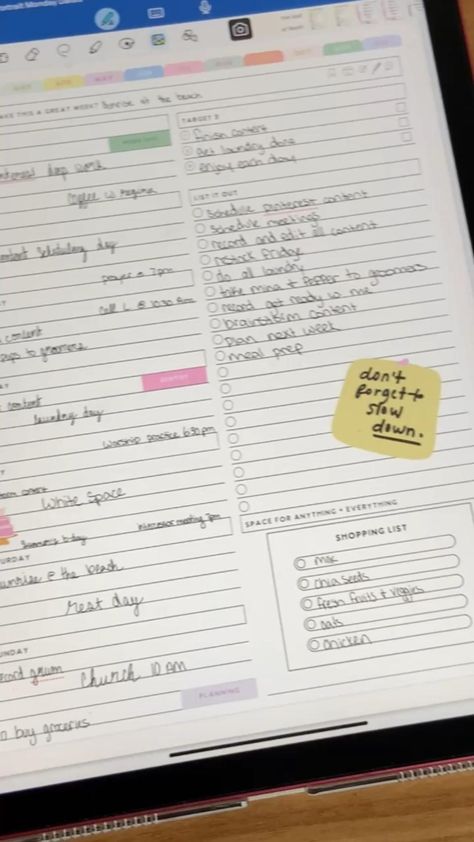 Portrait Monday Dated
MAKE THIS A GREAT WEEK? Sunrise at the beach
TARGET 3
finish content
get laundry done
enjoy each day
pinterest deep work
coffee w
LIST IT OUT
schedule pinterest content
schedule meetings
record and edit all content
restock fridge
do all laundry
take mina + pepper to groomers
record get ready w me
brainstorm content
plan next week
meal prep
content scheduling day
prayer @ 7pm
call L @ 10:30 am
content
pups to groomers
content
laundry day
worship practice 6:30pm
content
White Space
b-day
meeting 7pm
don't
forget to
slow
down.
SPACE FOR ANYTHING + EVERYTHING
SHOPPING LIST
chia seeds
fresh fruits + veggies
oats
chicken
SATURDAY
sunrise @ the beach
rest day
SUNDAY
record
church 10 AM
PLANNING
buy groceries